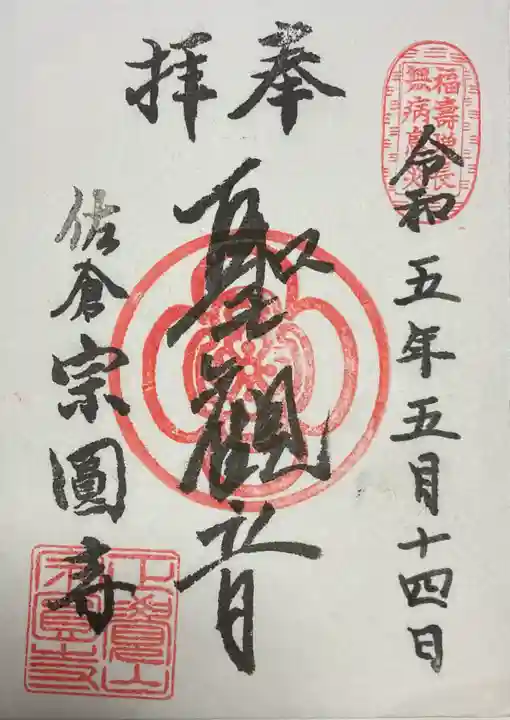 福壽増長
無病息災
令和五年五月十四日
奉拝
聖観音
佐倉宗圓寺